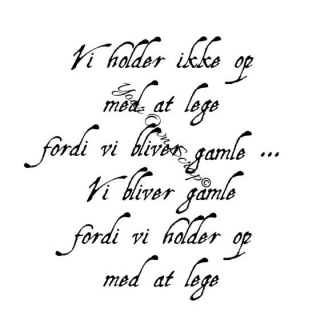 Vi holder ikke op
med at lege
fordi vi bliver gamle ...
Vi bliver gamle
fordi vi holder op
med at lege